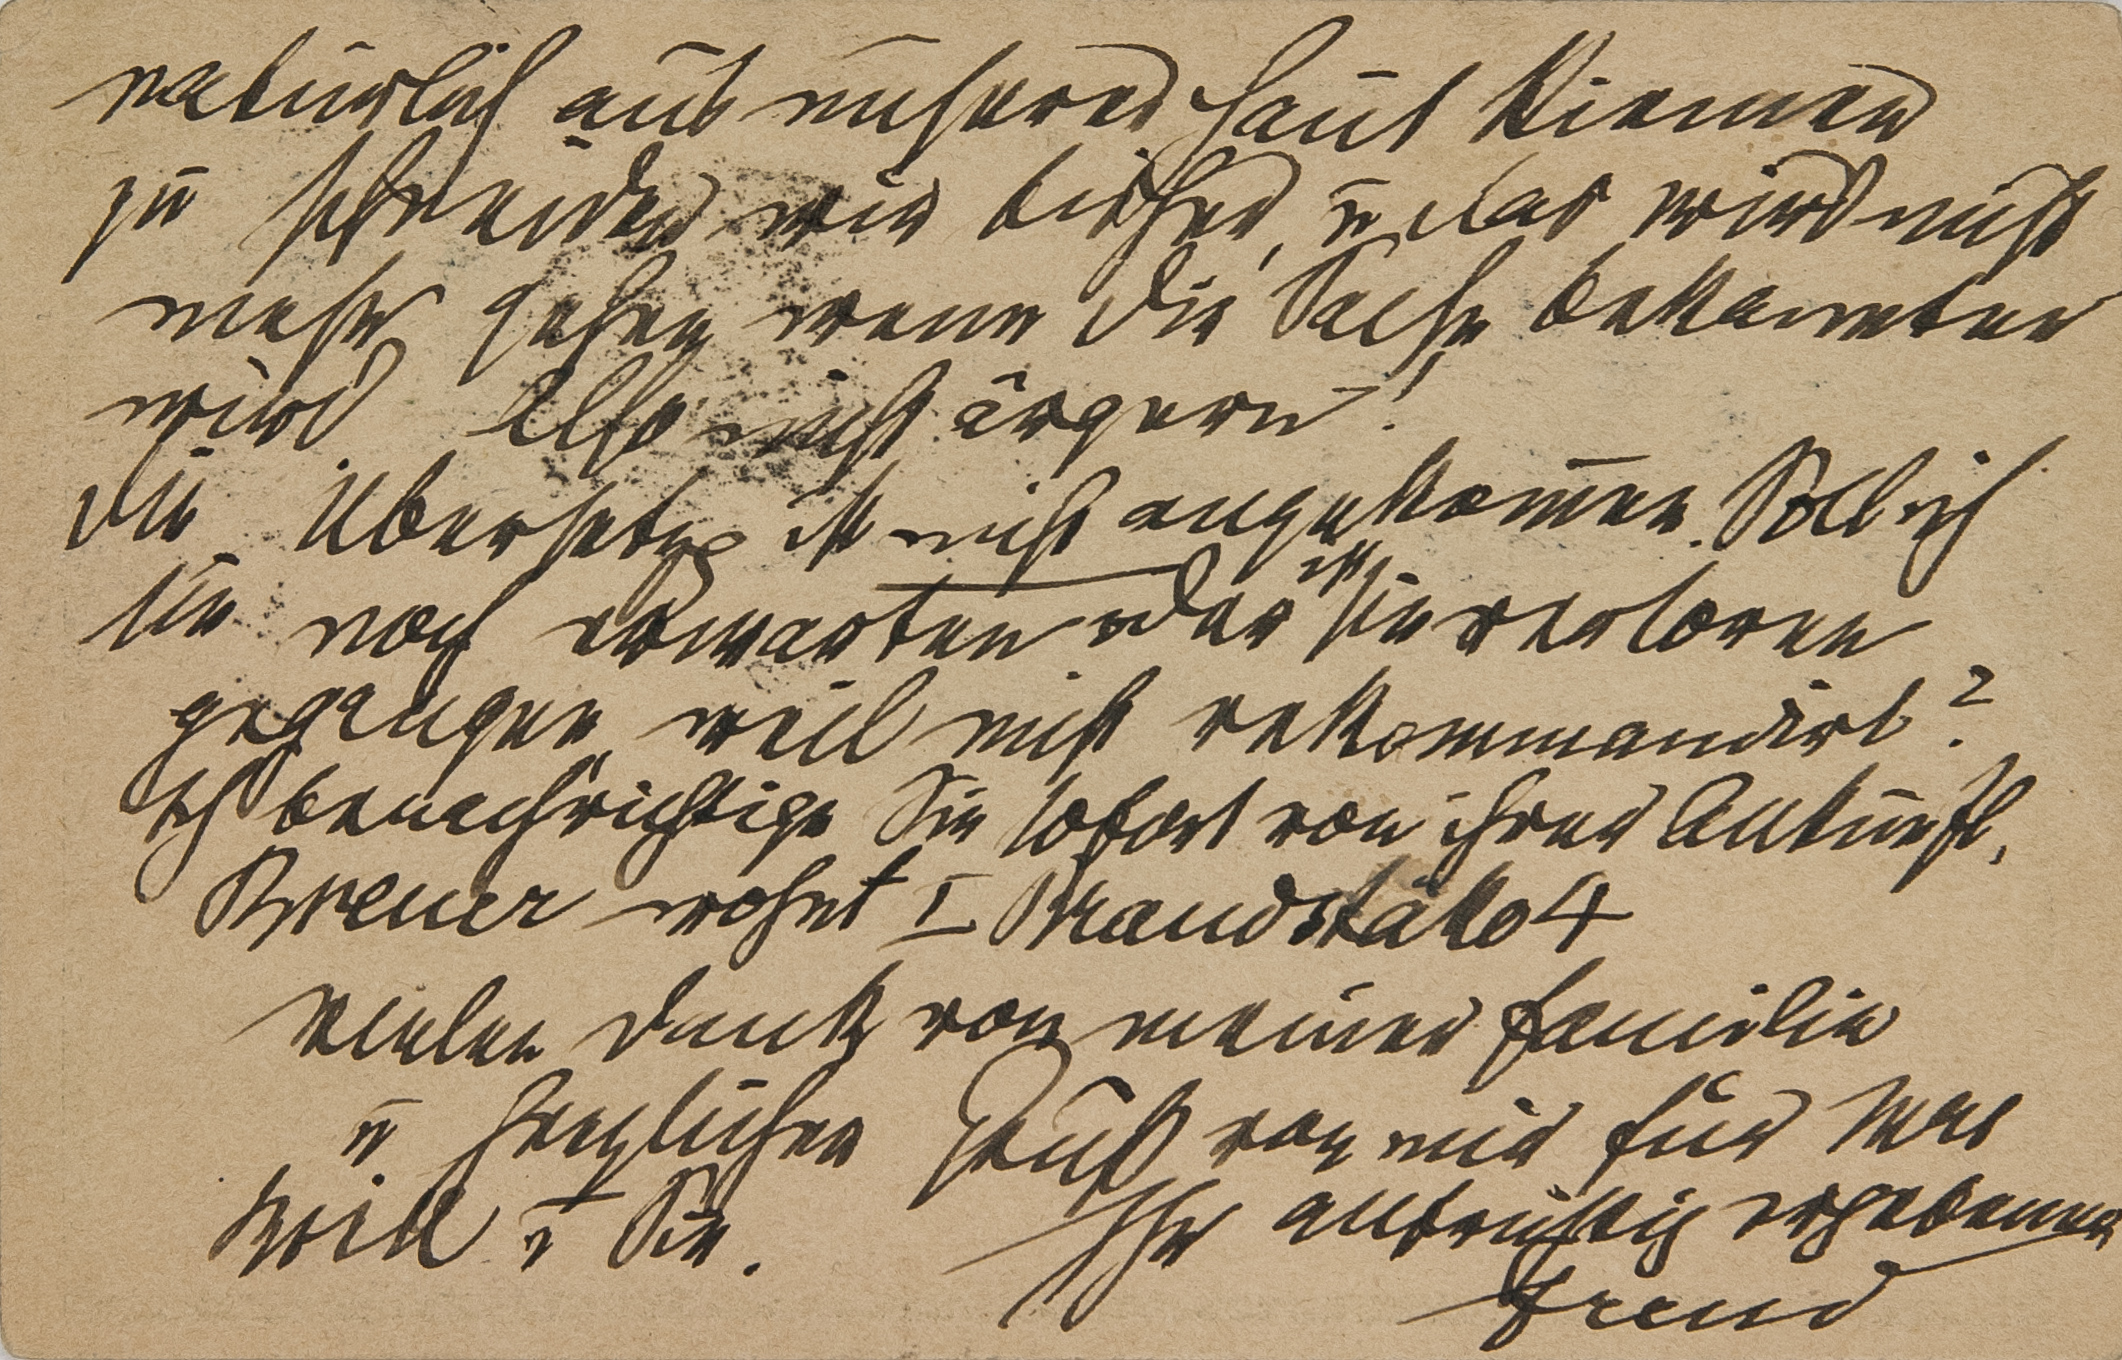 natürlich aus unserer Haut Riemen
zu schneiden wie bisher, u das wird nicht
mehr gehen wenn die Sache bekannter
wird. Also nicht ärgern!
Die Übersetzg ist nicht angekom̄en. Soll ich
sie noch erwarten oder ist sie verloren
gegangen, weil nicht rekommandirt?
Ich benachrichtige Sie sofort von ihrer Ankunft.
Breuer wohnt I Brandstätte 4
Vielen Dank von meiner Familie
u herzlichen Gruß von mir für Mrs
Brill u Sie.
Ihr aufrichtig ergebener
Freud